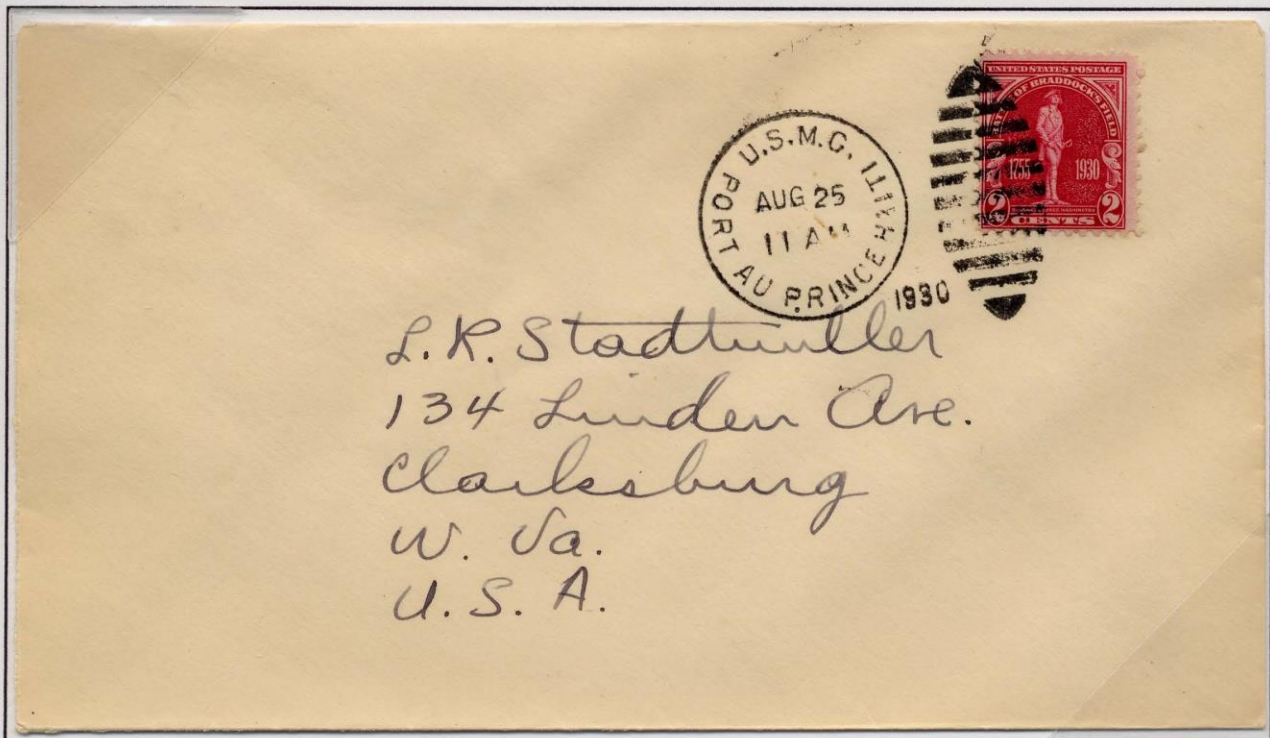 U.S.M.C.
PORT AU PRINCE HAITI
AUG 25
11 AM
1930
UNITED STATES POSTAGE
BATTLE OF BRADDOCK'S FIELD
1755 1930
2 CENTS 2
L.R. Stadtmiller
134 Linden Ave.
Clarksburg
W. Va.
U.S.A.